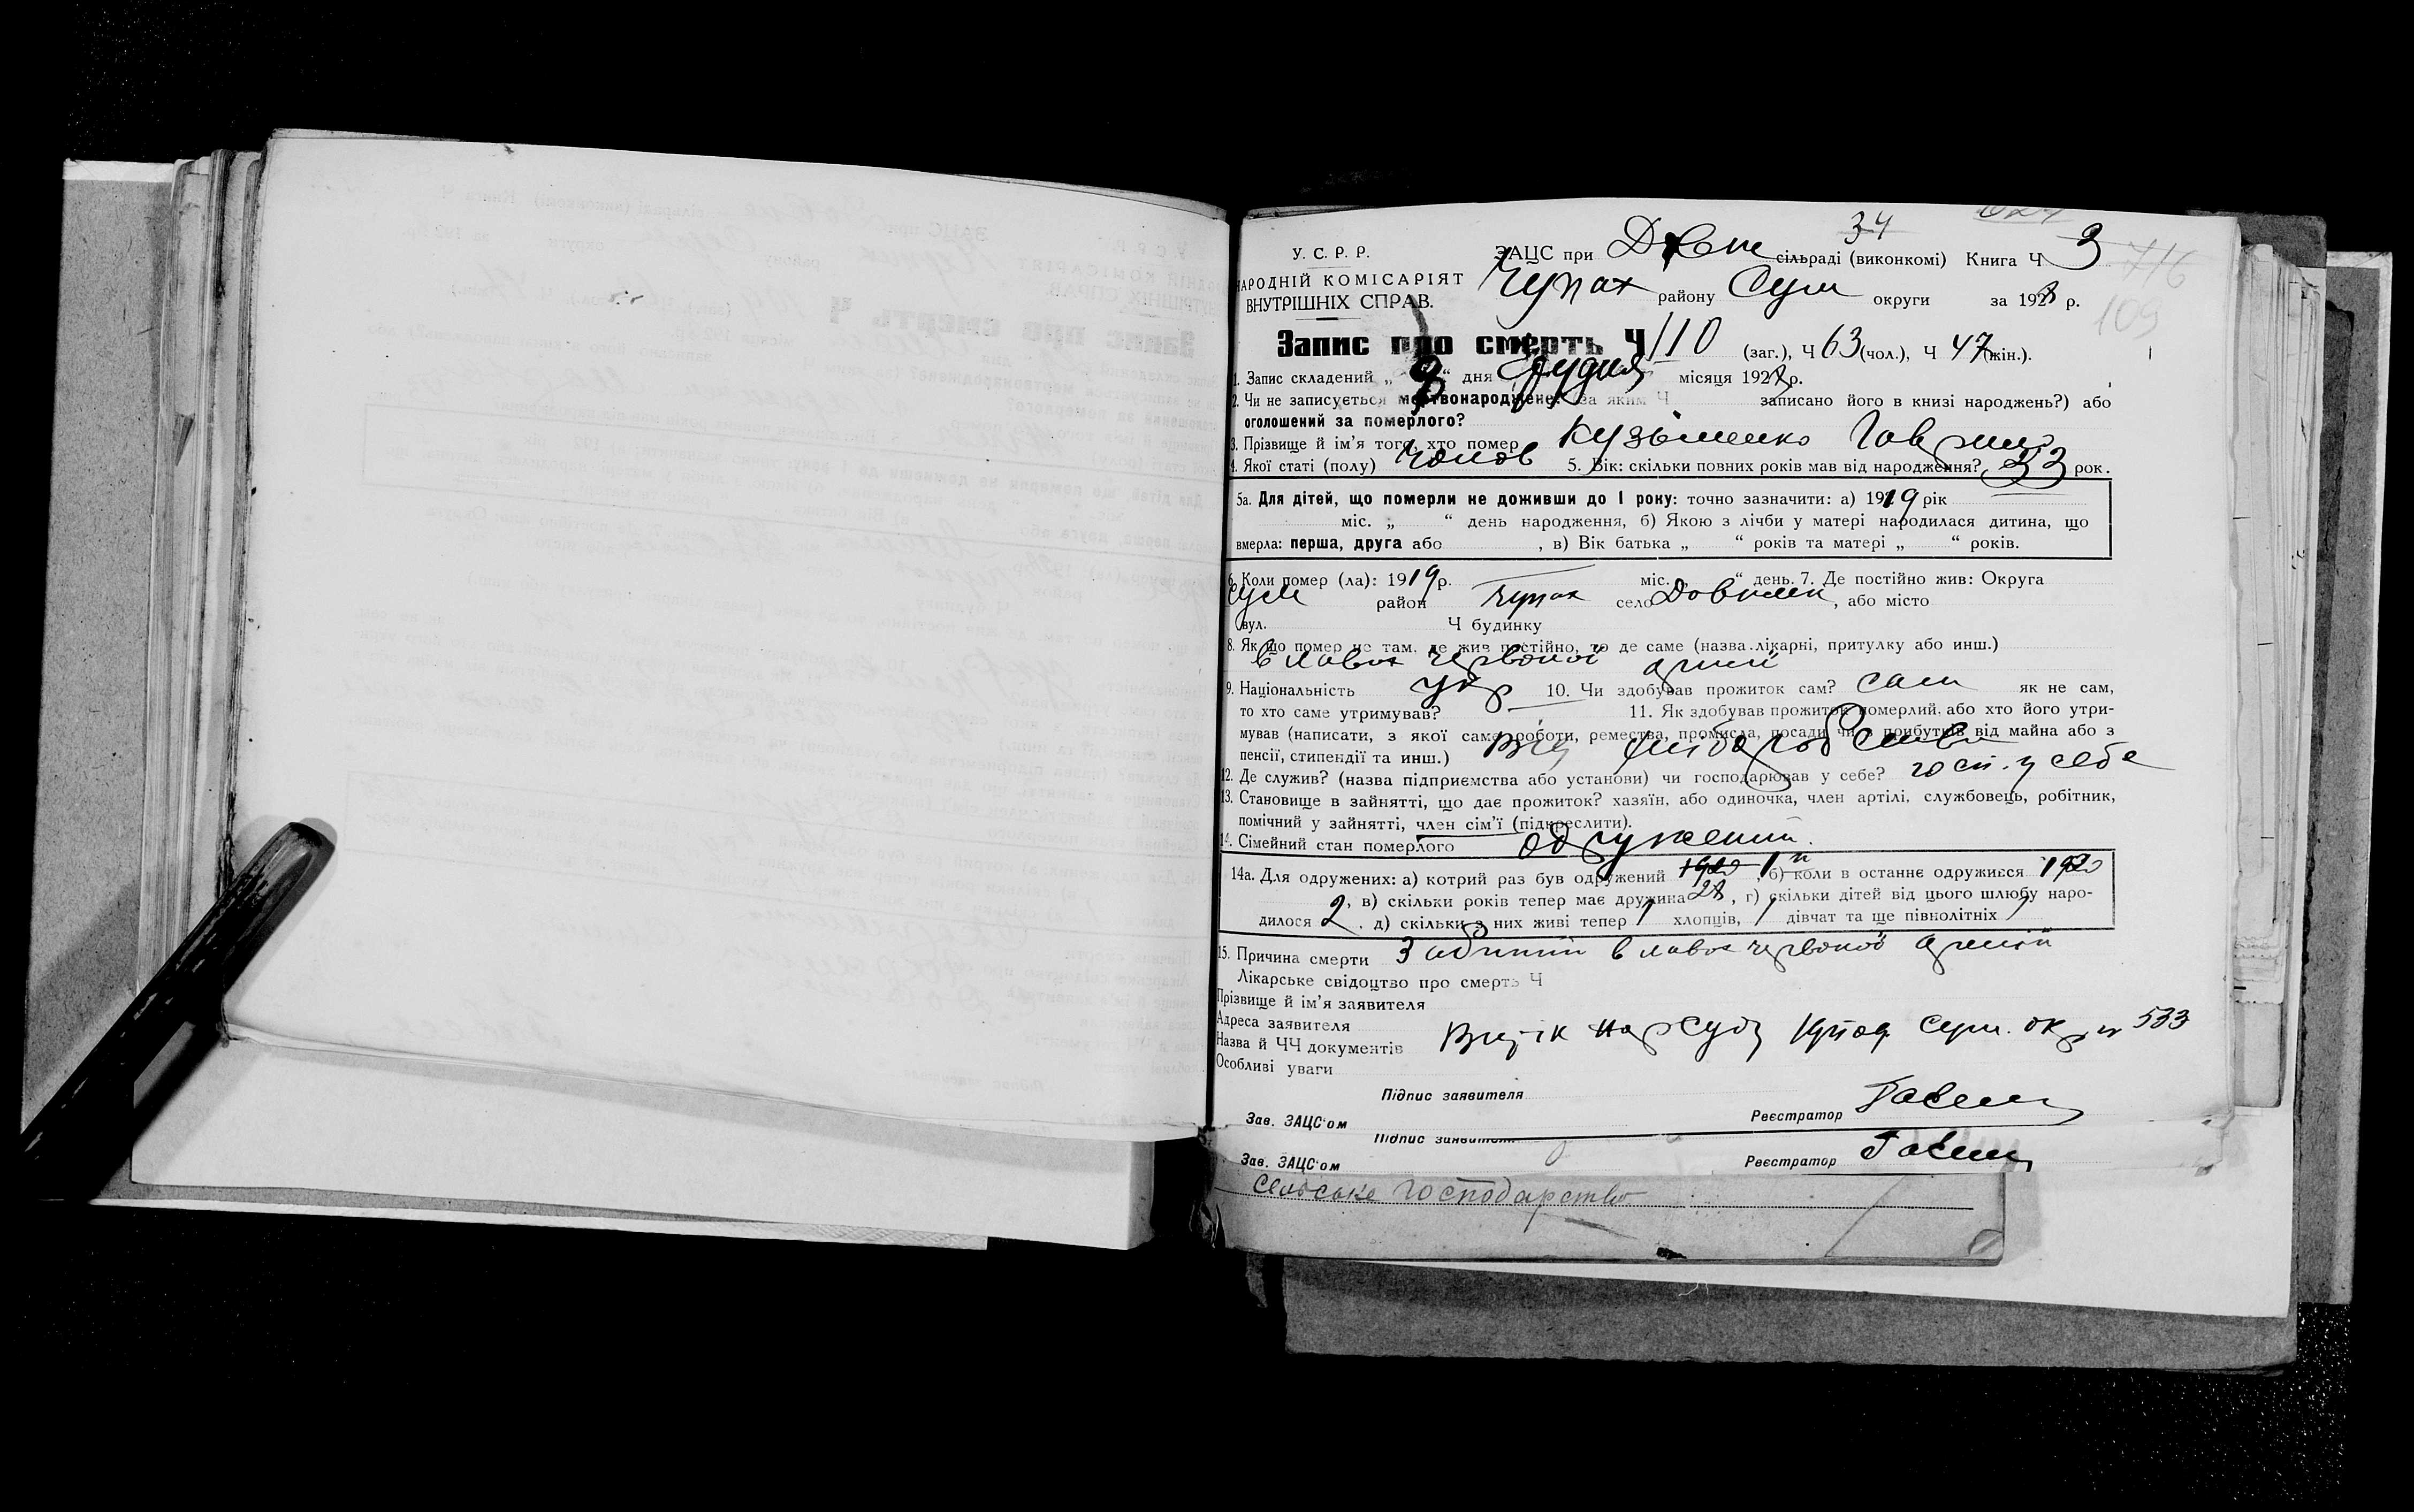 34
У. С. Р. Р.
ЗАЦС при сільраді (виконкомі) Книга Ч 3
НАРОДНІЙ КОМІСАРІЯТ
ВНУТРІШНІХ СПРАВ.
Чупах району Сум округи за 1928 р.
716
109
Запис про смерть Ч 110 (заг.), Ч 63 (чол.), Ч 47 (жін.).
1. Запис складений „ 9 “ дня Грудня місяця 1928 р.
2. Чи не записується мертвонароджене? (за яким Ч записано його в книзі народжень?) або
оголошений за померлого?
3. Прізвище й ім'я того, хто помер Кузьменко Гаврило
4. Якої статі (полу) Чолов 5. Вік: скільки повних років мав від народження? 33 рок.
5а. Для дітей, що померли не доживши до 1 року: точно зазначити: а) 1919 рік
міс. „ “ день народження, б) Якою з лічби у матері народилася дитина, що
вмерла: перша, друга або , в) Вік батька „ “ років та матері „ “ років.
6. Коли помер (ла): 1919 р. міс. „ “ день. 7. Де постійно жив: Округа
Сум район Чупах село , або місто
вул. Ч будинку
8. Якщо помер не там, де жив постійно, то де саме (назва лікарні, притулку або инш.)
в лавах червоної армії
9. Національність укр 10. Чи здобував прожиток сам? сам як не сам,
то хто саме утримував? 11. Як здобував прожиток померлий, або хто його утри-
мував (написати, з якої саме роботи, ремества, промисла, посади чи з прибутків від майна або з
пенсії, стипендії та инш.) від хліборобства
12. Де служив? (назва підприємства або установи) чи господарював у себе? госп. у себе
13. Становище в зайнятті, що дає прожиток? хазяїн, або одиночка, член артілі, службовець, робітник,
помічний у зайнятті, член сім'ї (підкреслити).
14. Сімейний стан померлого одружений.
14а. Для одружених: а) котрий раз був одружений 1й, б) коли в останнє одружився
, в) скільки років тепер має дружина 28, г) скільки дітей від цього шлюбу наро-
дилося 2, д) скільки з них живі тепер 1 хлопців, 1 дівчат та ще півнолітніх
15. Причина смерти Забитий в лавах червоної армії
Лікарське свідоцтво про смерть Ч
Прізвище й ім'я заявителя
Адреса заявителя
Назва й ЧЧ документів Витяк нарсуду Сум. окр № 533
Особливі уваги
Підпис заявителя
Зав. ЗАЦС'ом Реєстратор
Підпис заявителя
Зав. ЗАЦС'ом Реєстратор
сельське господарство